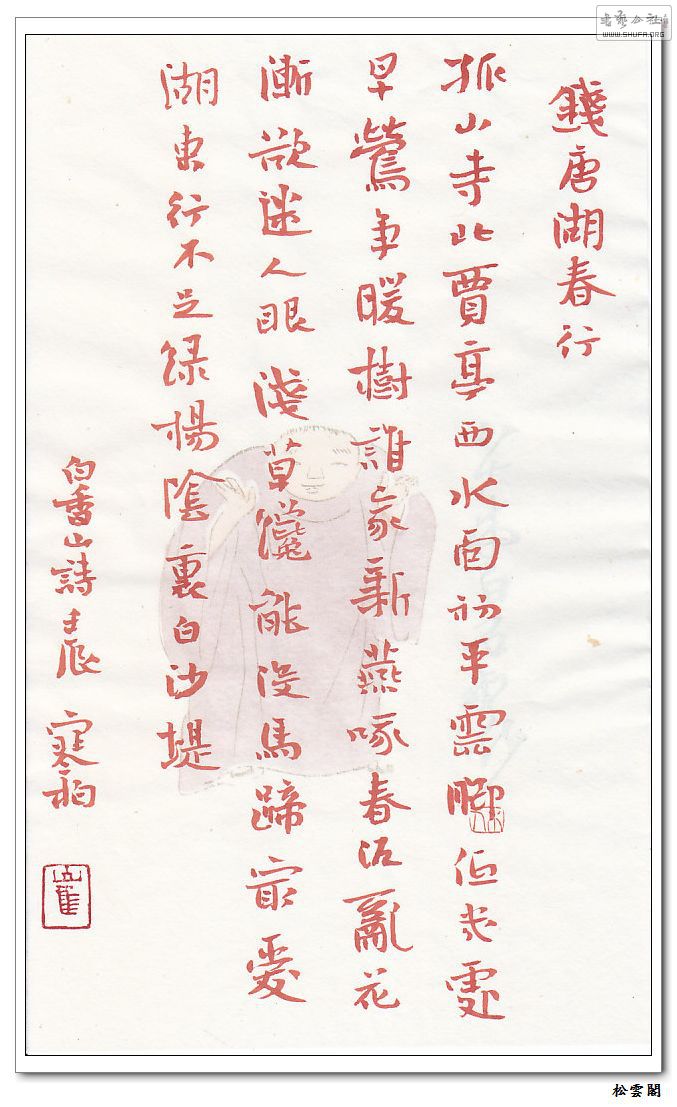 書藝公社
WWW.SHUFA.ORG
錢唐湖春行
孤山寺北賈亭西水面初平雲腳低幾處
早鶯爭暖樹誰家新燕啄春泥亂花
漸欲迷人眼淺草纔能沒馬蹄冣愛
湖東行不足綠楊陰裏白沙堤
白香山詩壬辰 寒
崔
松雲閣